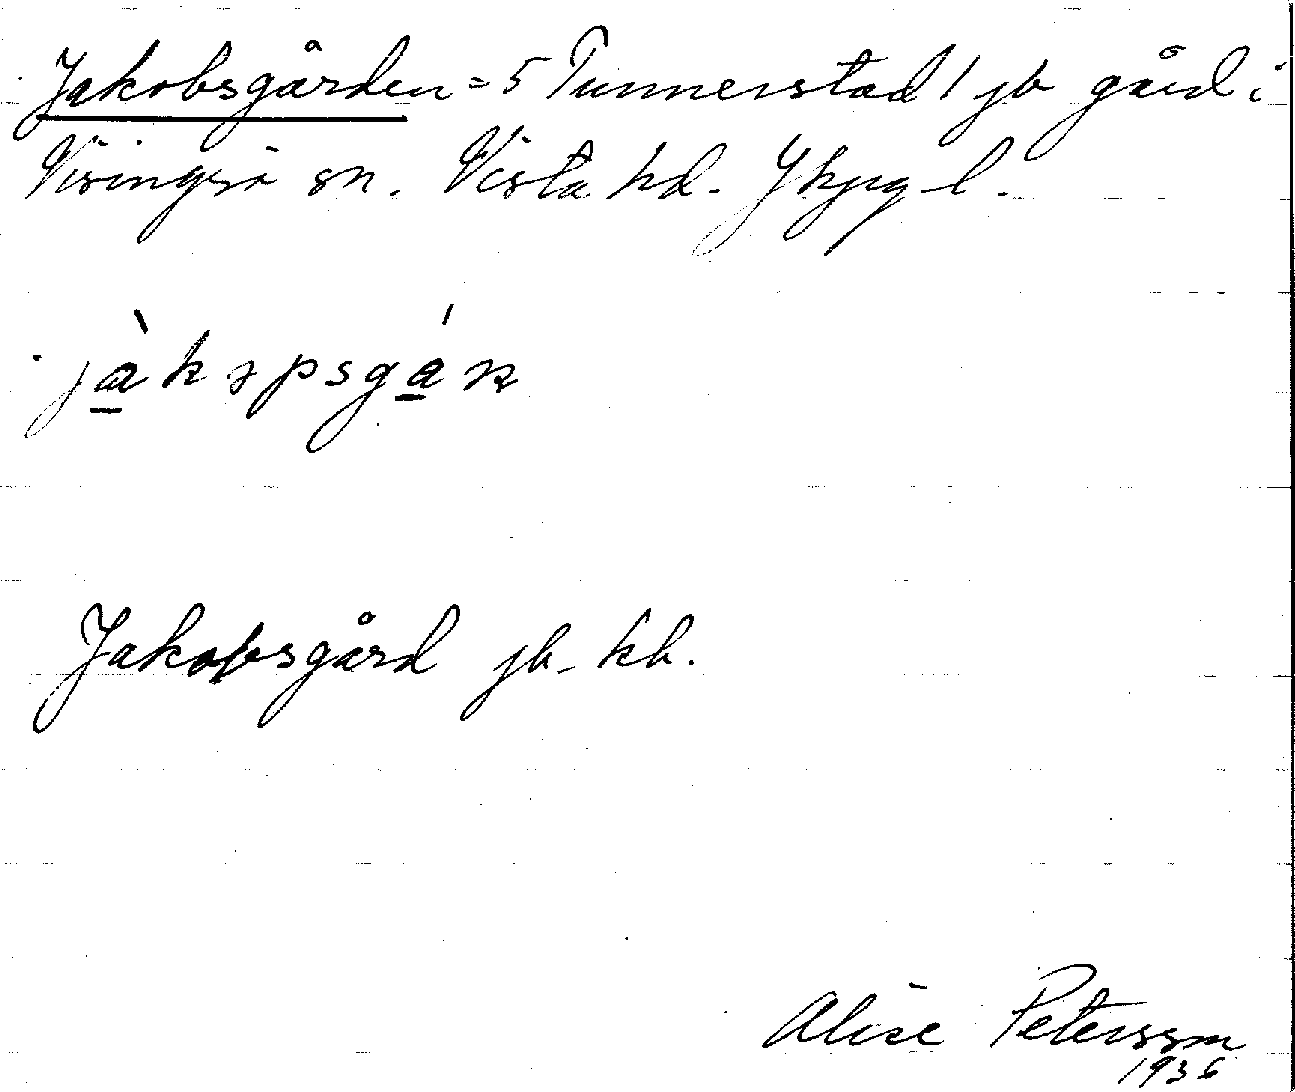 Jakobsgården = 5 Tunnerstad 1 jb gård i
Visingsö sn. Vista hd. Jkpg l.
jàkəpsgán
Jakobsgård jb. kb.
Alice Petersson
1936